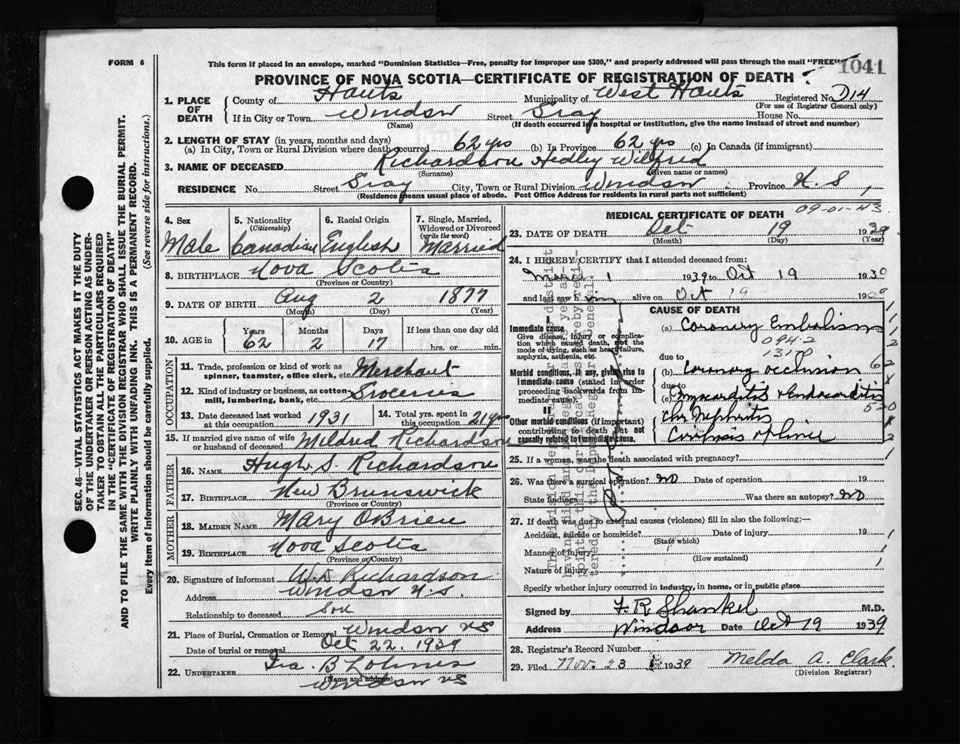 FORM 6
This form if placed in an envelope, marked "Dominion Statistics—Free, penalty for improper use $300," and properly addressed will pass through the mail "FREE"
1041
PROVINCE OF NOVA SCOTIA—CERTIFICATE OF REGISTRATION OF DEATH
1. PLACE OF DEATH
County of Hants Municipality of West Hants Registered No. D14
(For use of Registrar General only)
If in City or Town Windsor Street Gray House No.
(Name) (If death occurred in a hospital or institution, give the name instead of street and number)
2. LENGTH OF STAY (in years, months and days)
(a) In City, Town or Rural Division where death occurred 62 yrs (b) In Province 62 yrs (c) In Canada (if immigrant)
3. NAME OF DECEASED Richardson Hedley Wilfred
(Surname) (Given name or names)
RESIDENCE No. Street Gray City, Town or Rural Division Windsor Province N.S
(Residence means usual place of abode. Post Office Address for residents in rural parts not sufficient)
4. Sex Male
5. Nationality (Citizenship) Canadian
6. Racial Origin English
7. Single, Married, Widowed or Divorced (write the word) Married
8. BIRTHPLACE Nova Scotia
(Province or Country)
9. DATE OF BIRTH Aug 2 1877
(Month) (Day) (Year)
10. AGE in Years Months Days If less than one day old
62 2 17 hrs. or min.
OCCUPATION
11. Trade, profession or kind of work as spinner, teamster, office clerk, etc. Merchant
12. Kind of industry or business, as cotton-mill, lumbering, bank, etc. Groceries
13. Date deceased last worked at this occupation 1931
14. Total yrs. spent in this occupation
15. If married give name of wife or husband of deceased Mildred Richardson
FATHER
16. NAME Hugh S. Richardson
17. BIRTHPLACE New Brunswick
(Province or Country)
MOTHER
18. MAIDEN NAME Mary OBrien
19. BIRTHPLACE Nova Scotia
(Province or Country)
20. Signature of informant Richardson
Address Windsor N.S.
Relationship to deceased Son
21. Place of Burial, Cremation or Removal Windsor NS
Date of burial or removal Oct 22. 1939
22. UNDERTAKER
(Name and address)
Windsor NS
MEDICAL CERTIFICATE OF DEATH
09-01-43
23. DATE OF DEATH Oct 19 1939
(Month) (Day) (Year)
24. I HEREBY CERTIFY that I attended deceased from:
1 1939 to Oct 19 193
and last saw h alive on Oct 19 19
CAUSE OF DEATH
Immediate cause
Give disease, injury or complication which caused death, not the mode of dying, such as heart failure, asphyxia, asthenia, etc.
(a) Coronary Embolism
due to
Morbid conditions, if any, giving rise to immediate cause (stated in order proceeding backwards from immediate cause).
(b) Coronary occlusion
due to
(c) Myocarditis & Endocarditis
II
Other morbid conditions (if important) contributing to death but not causally related to immediate cause.
Chr Nephritis
25. If a woman, was the death associated with pregnancy?
26. Was there a surgical operation? no Date of operation 19
State findings Was there an autopsy? no
27. If death was due to external causes (violence) fill in also the following:—
Accident, suicide or homicide? Date of injury 19
(State which)
Manner of injury
(How sustained)
Nature of injury
Specify whether injury occurred in industry, in home, or in public place
Signed by F.R. Shankel M.D.
Address Windsor Date Oct 19 1939
28. Registrar's Record Number
29. Filed Nov. 23 1939 Melda A. Clark
(Division Registrar)
SEC. 46—VITAL STATISTICS ACT MAKES IT THE DUTY
OF THE UNDERTAKER OR PERSON ACTING AS UNDER-
TAKER TO OBTAIN ALL THE PARTICULARS REQUIRED
IN THE "CERTIFICATE OF REGISTRATION OF DEATH"
AND TO FILE THE SAME WITH THE DIVISION REGISTRAR WHO SHALL ISSUE THE BURIAL PERMIT.
WRITE PLAINLY WITH UNFADING INK. THIS IS A PERMANENT RECORD.
Every item of information should be carefully supplied. (See reverse side for instructions.)